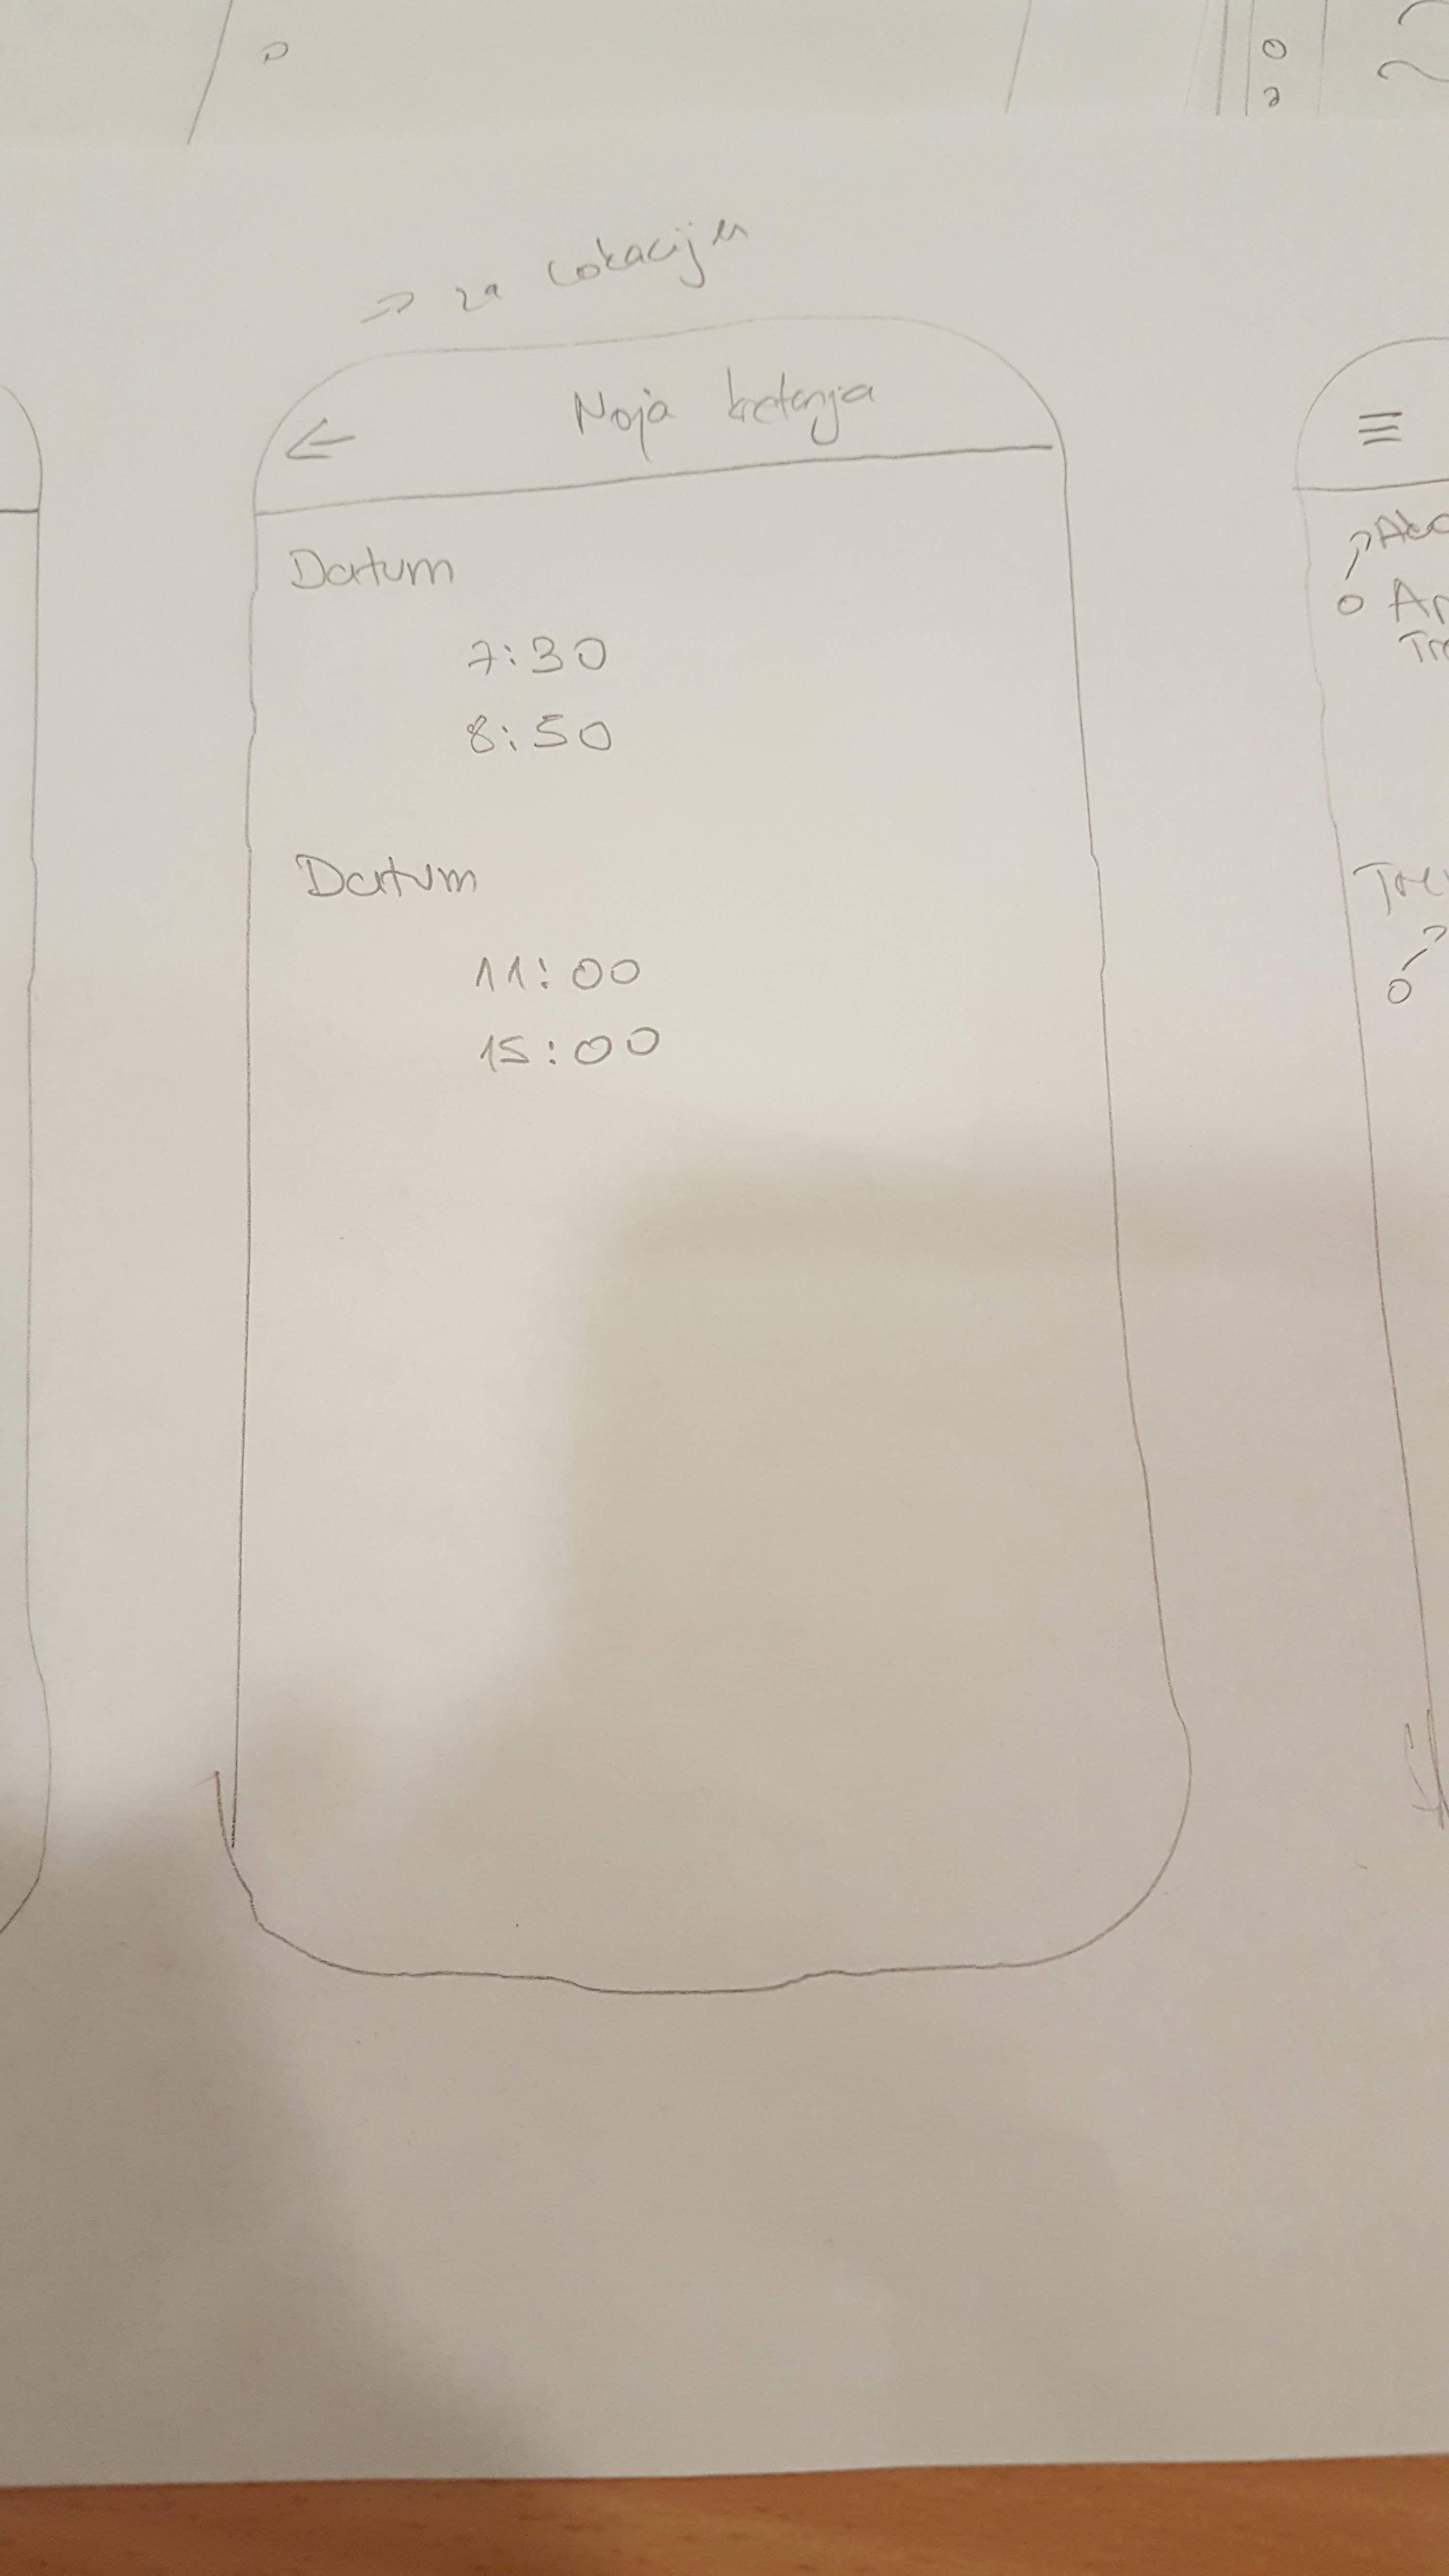 => za lokaciju
Moja kretanja
Datum
7:30
8:50
Datum
11:00
15:00